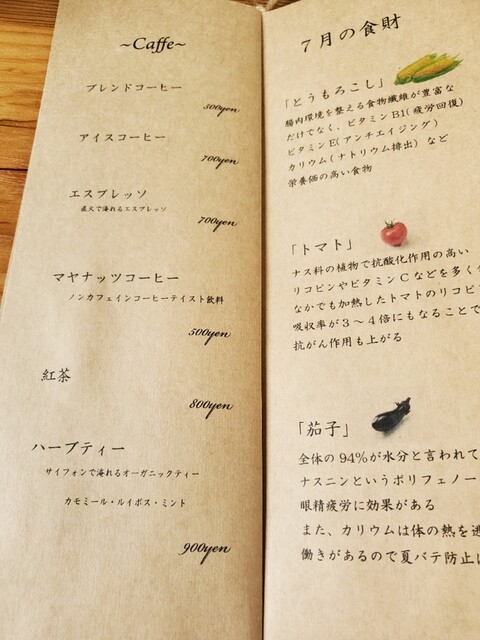 ~Caffe~
ブレンドコーヒー
500yen
アイスコーヒー
700yen
エスプレッソ
直火で淹れるエスプレッソ
700yen
マヤナッツコーヒー
ノンカフェインコーヒーテイスト飲料
500yen
紅茶
800yen
ハーブティー
サイフォンで淹れるオーガニックティー
カモミール・ルイボス・ミント
900yen
7月の食財
「とうもろこし」
腸内環境を整える食物繊維が豊富な
だけでなく、ビタミンB1(疲労回復)
ビタミンE(アンチエイジング)
カリウム(ナトリウム排出) など
栄養価の高い食物
「トマト」
ナス科の植物で抗酸化作用の高い
リコピンやビタミンCなどを多く
なかでも加熱したトマトのリコピ
吸収率が3〜4倍にもなることで
抗がん作用も上がる
「茄子」
全体の94%が水分と言われて
ナスニンというポリフェノー
眼精疲労に効果がある
また、カリウムは体の熱を逃
働きがあるので夏バテ防止に